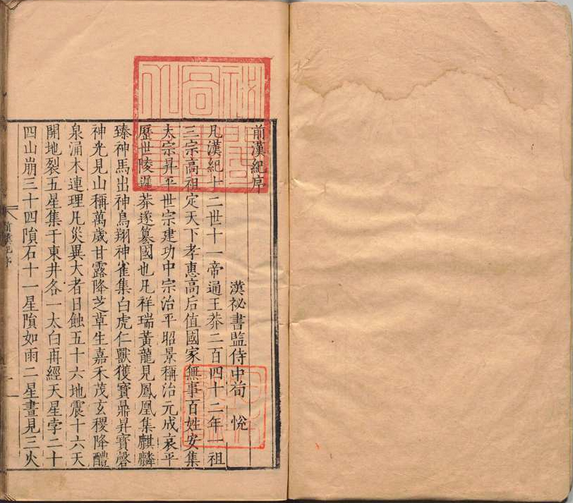 前漢紀序
漢祕書監侍中荀悅
凡漢紀十二世十一帝通王莽二百四十二年一祖
三宗高祖定天下孝惠高后值國家無事百姓安集
太宗昇平世宗建功中宗治平昭景稱治元成哀平
歷世陵遲莽遂篡國也凡祥瑞黃龍見鳳凰集麒麟
臻神馬出神鳥翔神雀集白虎仁獸獲寶鼎昇寶磬
神光見山稱萬歲甘露降芝草生嘉禾茂玄稷降醴
泉涌木連理凡災異大者日蝕五十六地震十六天
開地裂五星集于東井各一太白再經天星孛二十
四山崩三十四隕石十一星隕如雨二星晝見三火